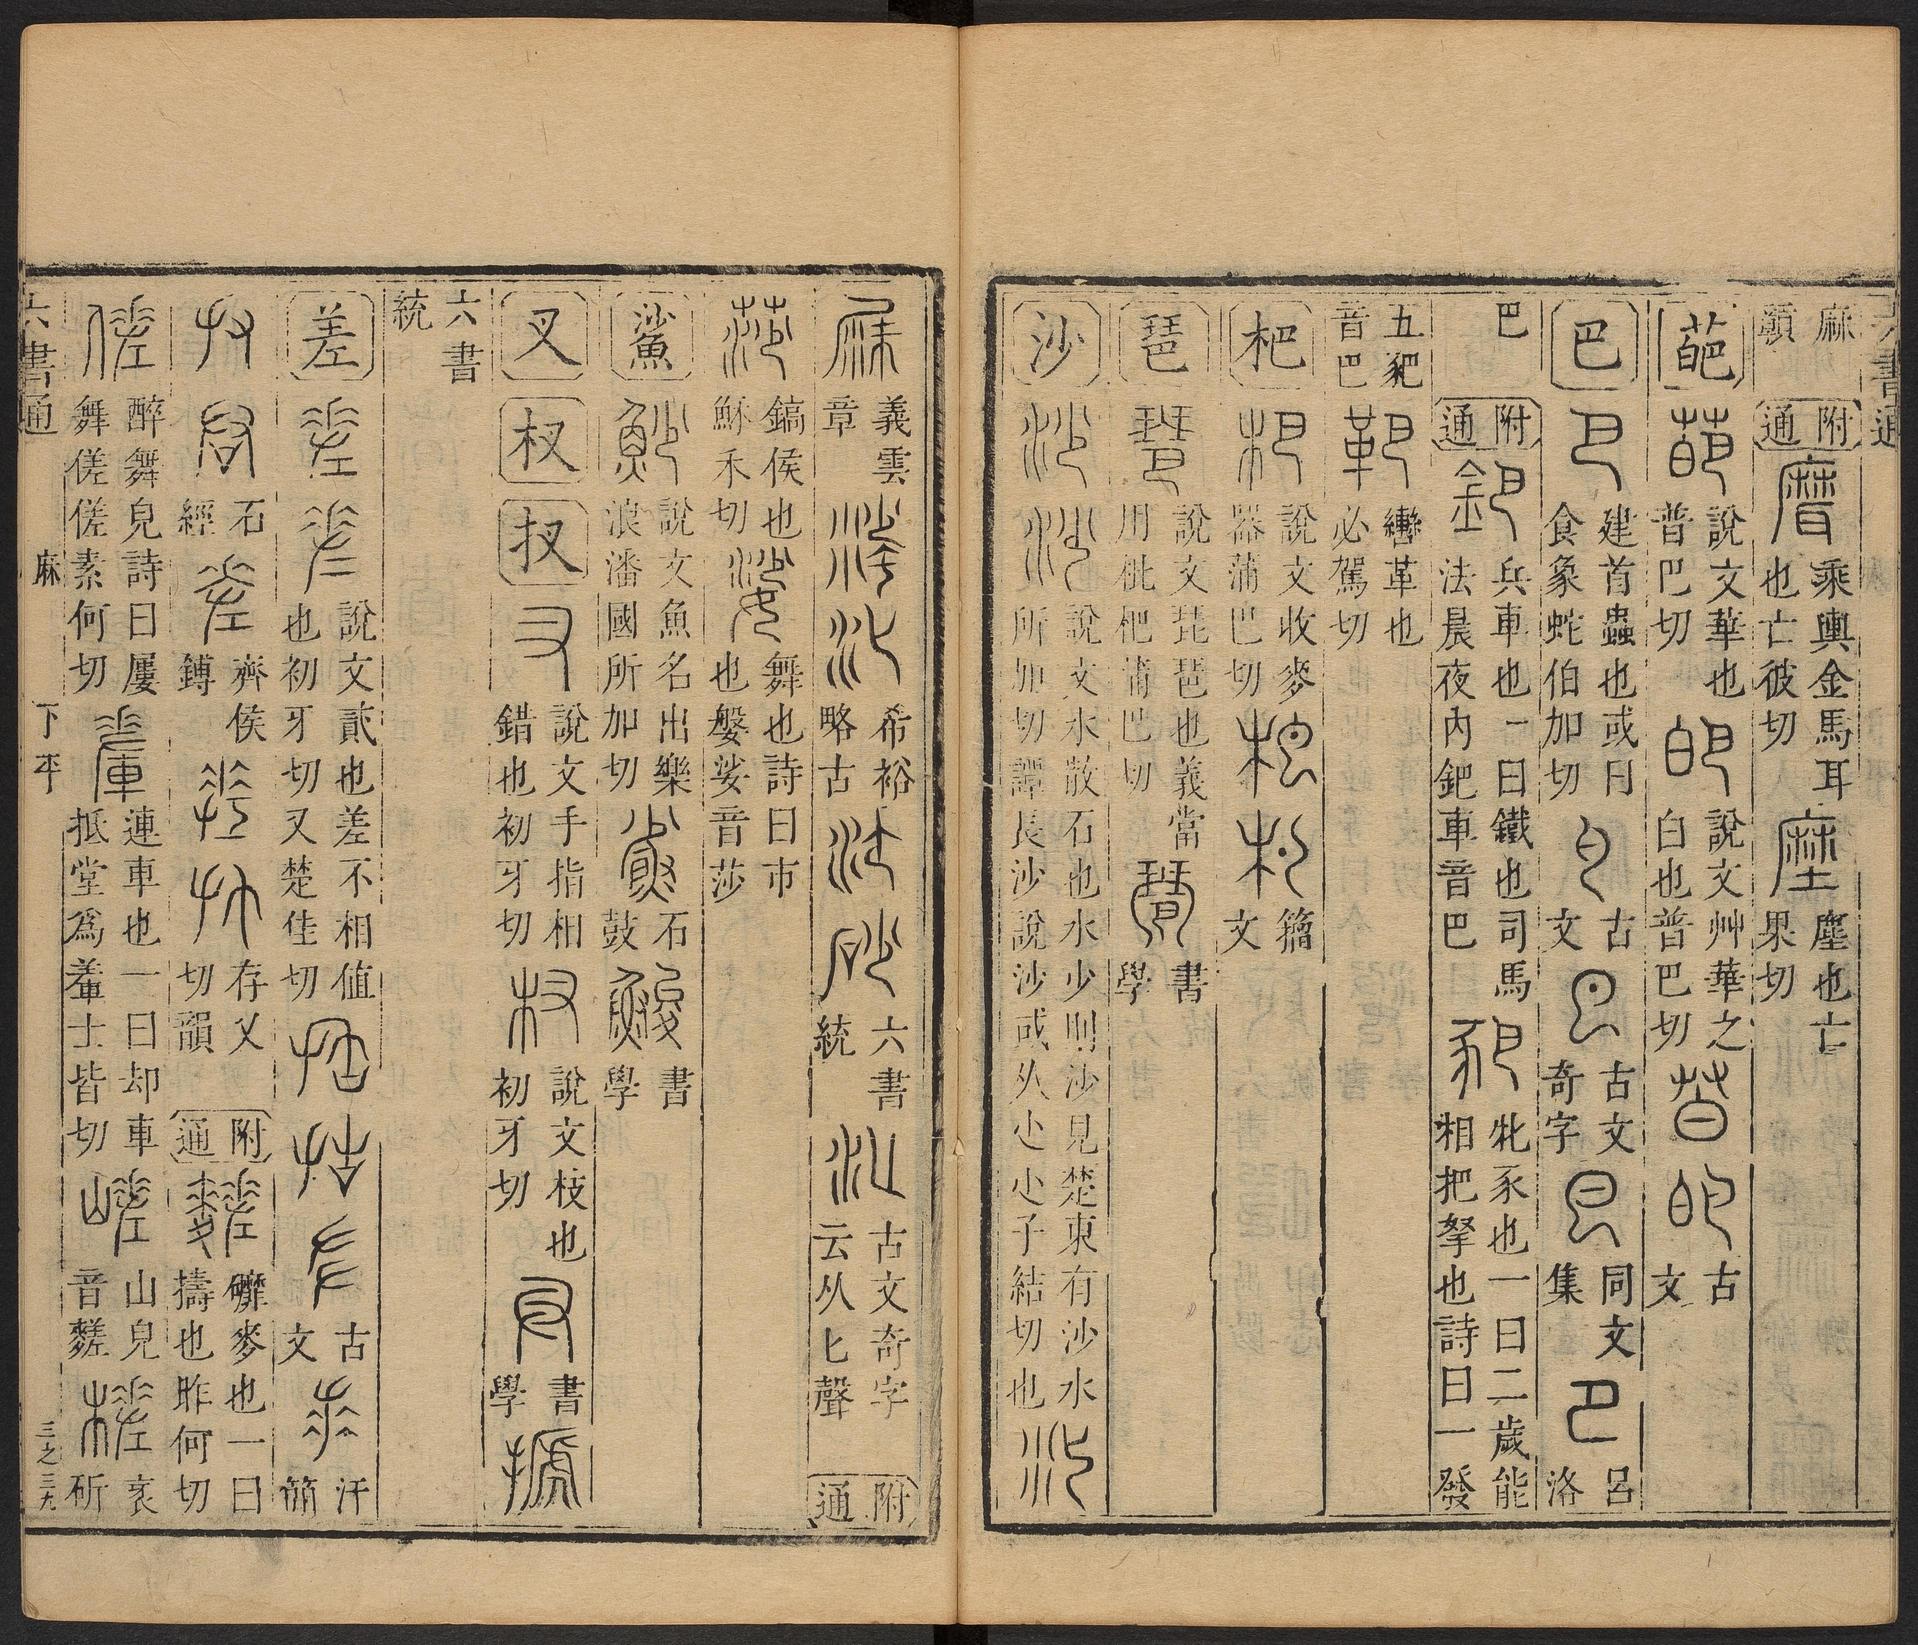 麻䪲 附通 乘輿金馬耳也亡彼切 塵也亡果切
葩 說文華也普巴切 說文艸華之白也普巴切 古文
巴 建首蟲也或曰食象蛇伯加切 古文 古文奇字 同文集 呂洛
巴 附通 兵車也一曰鐵也司馬法晨夜內鈀車音巴 牝豕也一曰二歲能相把拏也詩曰一發
五豝音巴 轡革也必駕切
杷 說文收麥器蒲巴切 籀文
琶 說文琵琶也義當用枇杷蒲巴切 書學
沙 說文水散石也水少則沙見楚東有沙水所加切譚長沙說沙或从少少子結切也
義雲章 希裕略古 六書統 古文奇字云从匕聲 附通
鎬侯也穌禾切 舞也詩曰市也媻娑音莎
鯊 說文魚名出樂浪潘國所加切 石鼓 書學
叉 杈 扠 說文手指相錯也初牙切 說文枝也初牙切 書學
六書統
差 說文貳也差不相值也初牙切又楚佳切 古文 汗簡
石經 齊侯鎛 存乂切韻 附通 䃺麥也一曰擣也昨何切
醉舞皃詩曰屢舞傞傞素何切 連車也一曰却車抵堂爲䡨士皆切 山皃音䴾 衺斫
六書通 麻 下平 三之三九